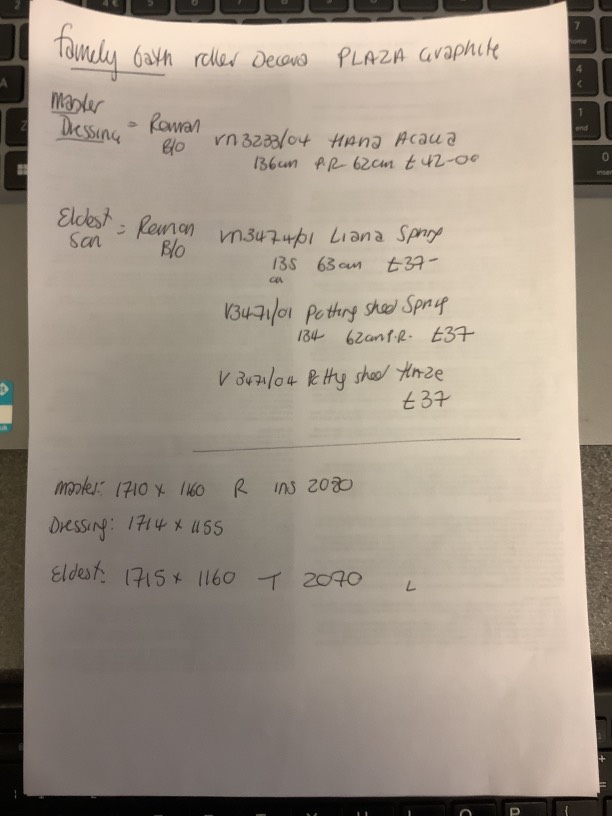 Family bath roller Decora PLAZA Graphite
Master
Dressing = Roman B/O vn3233/04 Hana Acacia
136cm P.R 62cm £42-00
Eldest Son = Roman B/O vn3474/01 Liana Spruce
135 cm 63cm £37-
V3471/01 Potting shed Spruce
134 62cm P.R. £37
V3471/04 Potting shed Haze
£37
Master: 1710 x 1160 R ins 2080
Dressing: 1714 x 1155
Eldest: 1715 x 1160 T 2070 L